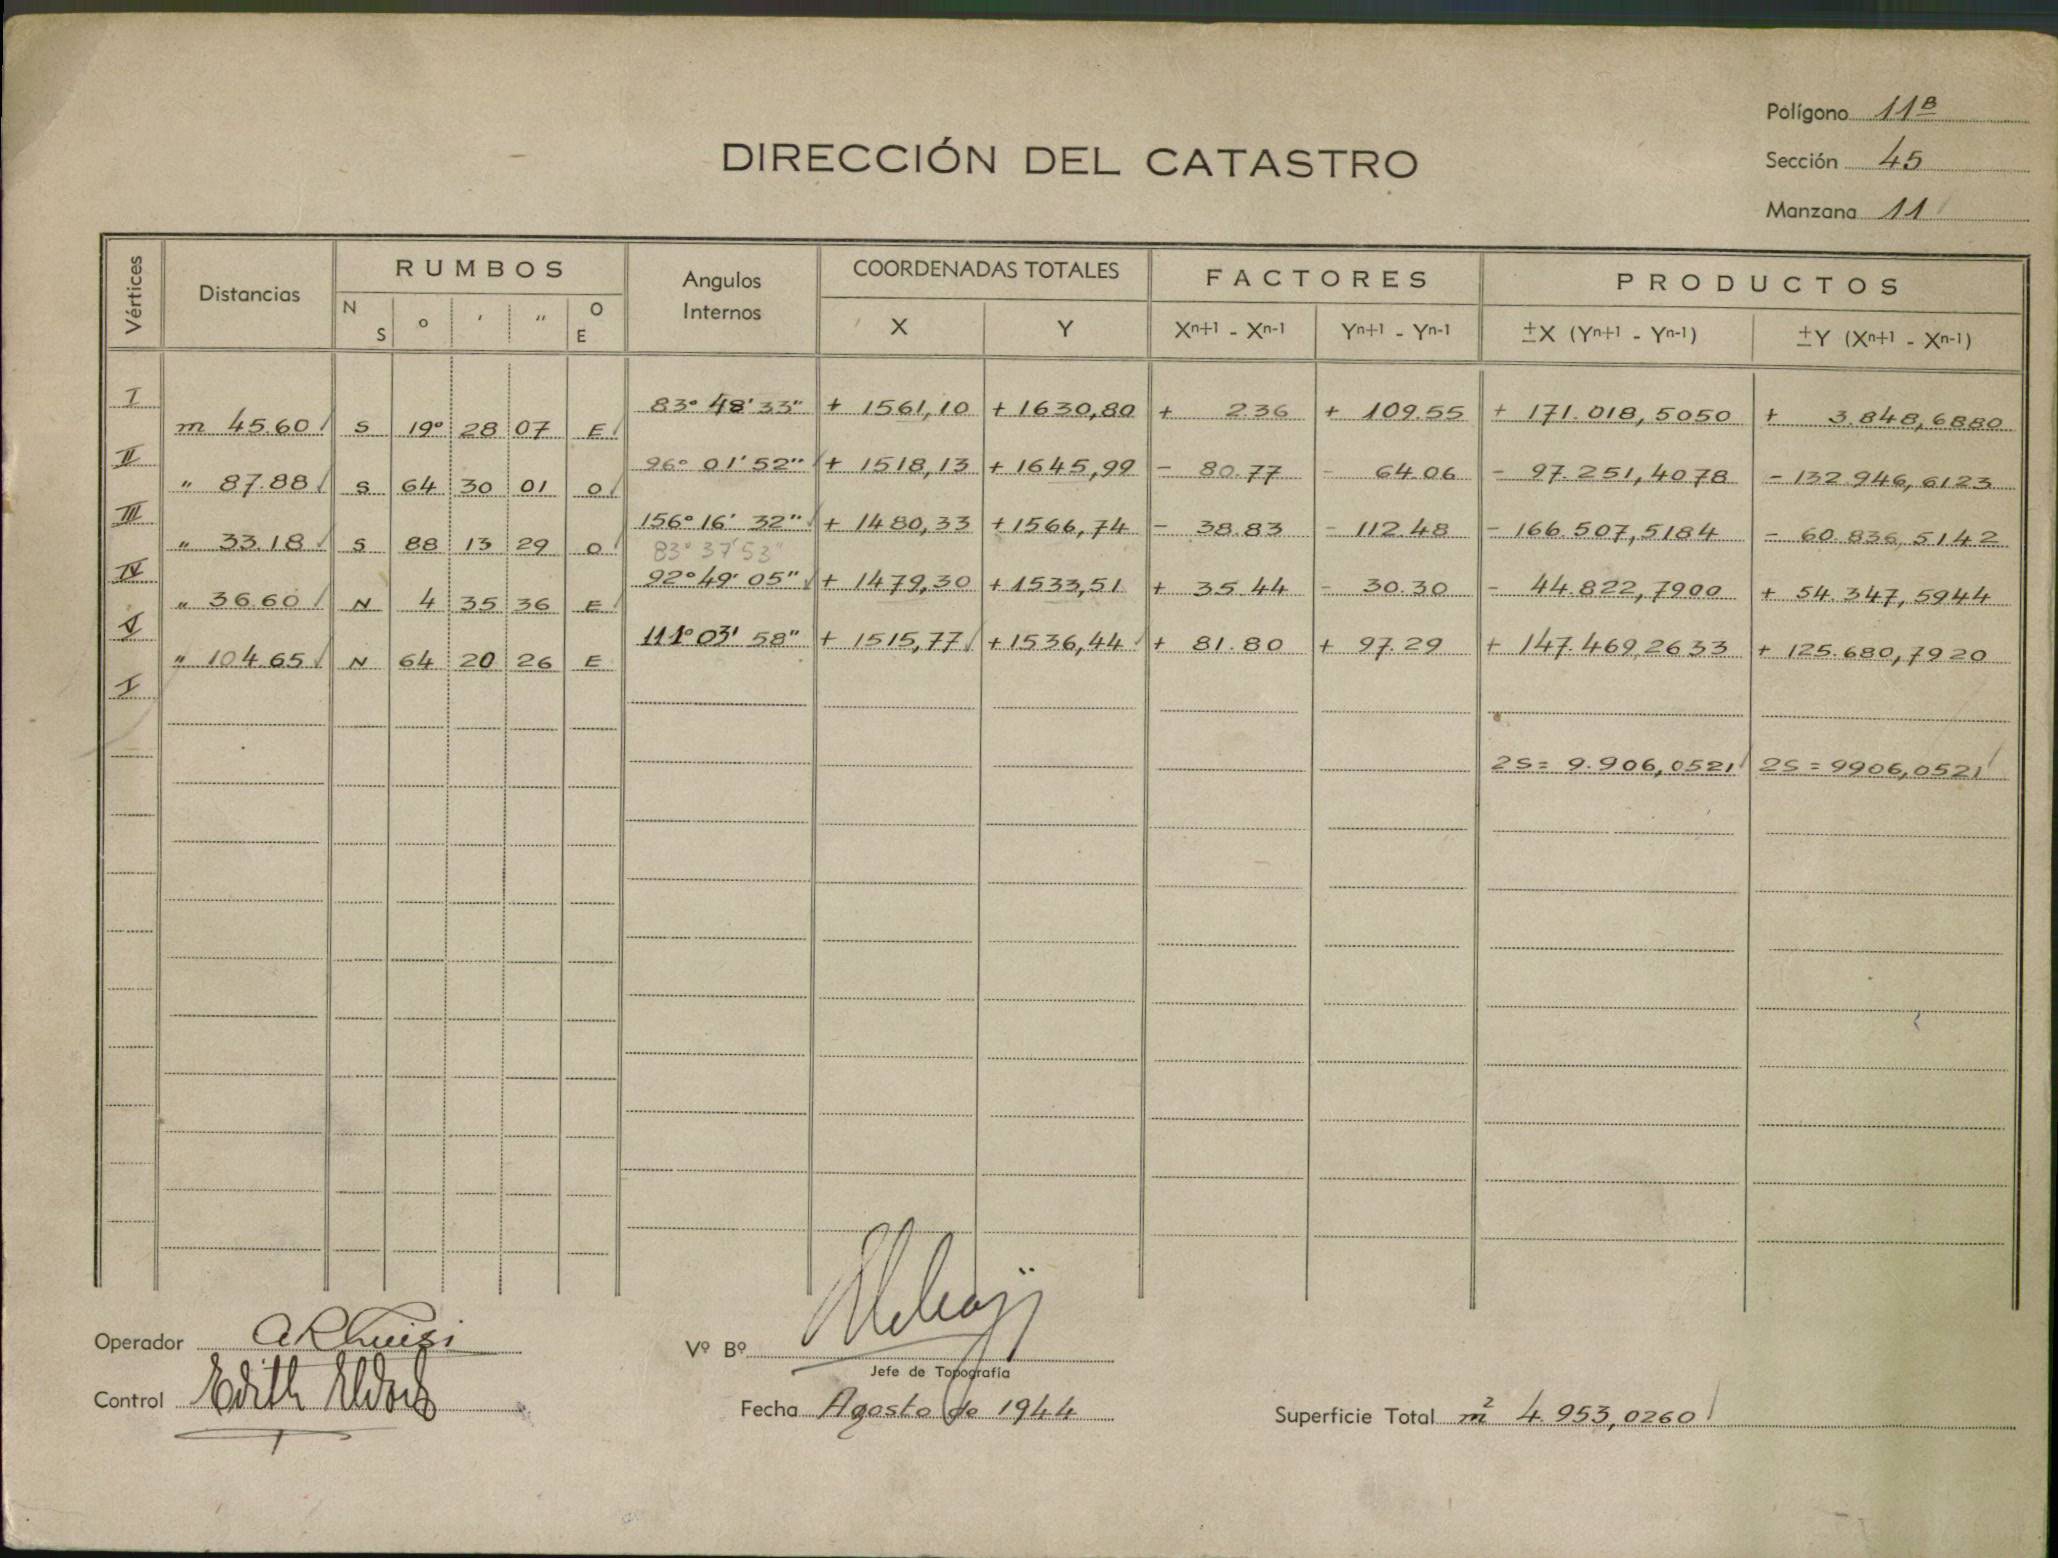 Polígono 11B
DIRECCIÓN DEL CATASTRO
Sección 45
Manzana 11
Vértices Distancias RUMBOS Angulos Internos COORDENADAS TOTALES FACTORES PRODUCTOS
N S ° ' " O E X Y Xn+1 - Xn-1 Yn+1 - Yn-1 ±X (Yn+1 - Yn-1) ±Y (Xn+1 - Xn-1)
I 83° 48' 33" + 1561,10 + 1630,80 + 236 + 109.55 + 171.018,5050 + 3.848,6880
m 45.60 S 19° 28 07 E
II 96° 01' 52" + 1518,13 + 1645,99 - 80.77 - 64.06 - 97.251,4078 - 132.946,6123
" 87.88 S 64 30 01 O
III 156° 16' 32" + 1480,33 + 1566,74 - 38.83 - 112.48 - 166.507,5184 - 60.836,5142
" 33.18 S 88 13 29 O 83° 37' 53"
IV 92° 49' 05" + 1479,30 + 1533,51 + 35.44 - 30.30 - 44.822,7900 + 54.347,5944
" 36.60 N 4 35 36 E
V 111° 03' 58" + 1515,77 + 1536,44 + 81.80 + 97.29 + 147.469,2633 + 125.680,7920
" 104.65 N 64 20 26 E
I
2S = 9.906,0521 2S = 9906,0521
Operador
Vº Bº
Jefe de Topografía
Control Edith
Fecha Agosto de 1944
Superficie Total m2 4.953,0260